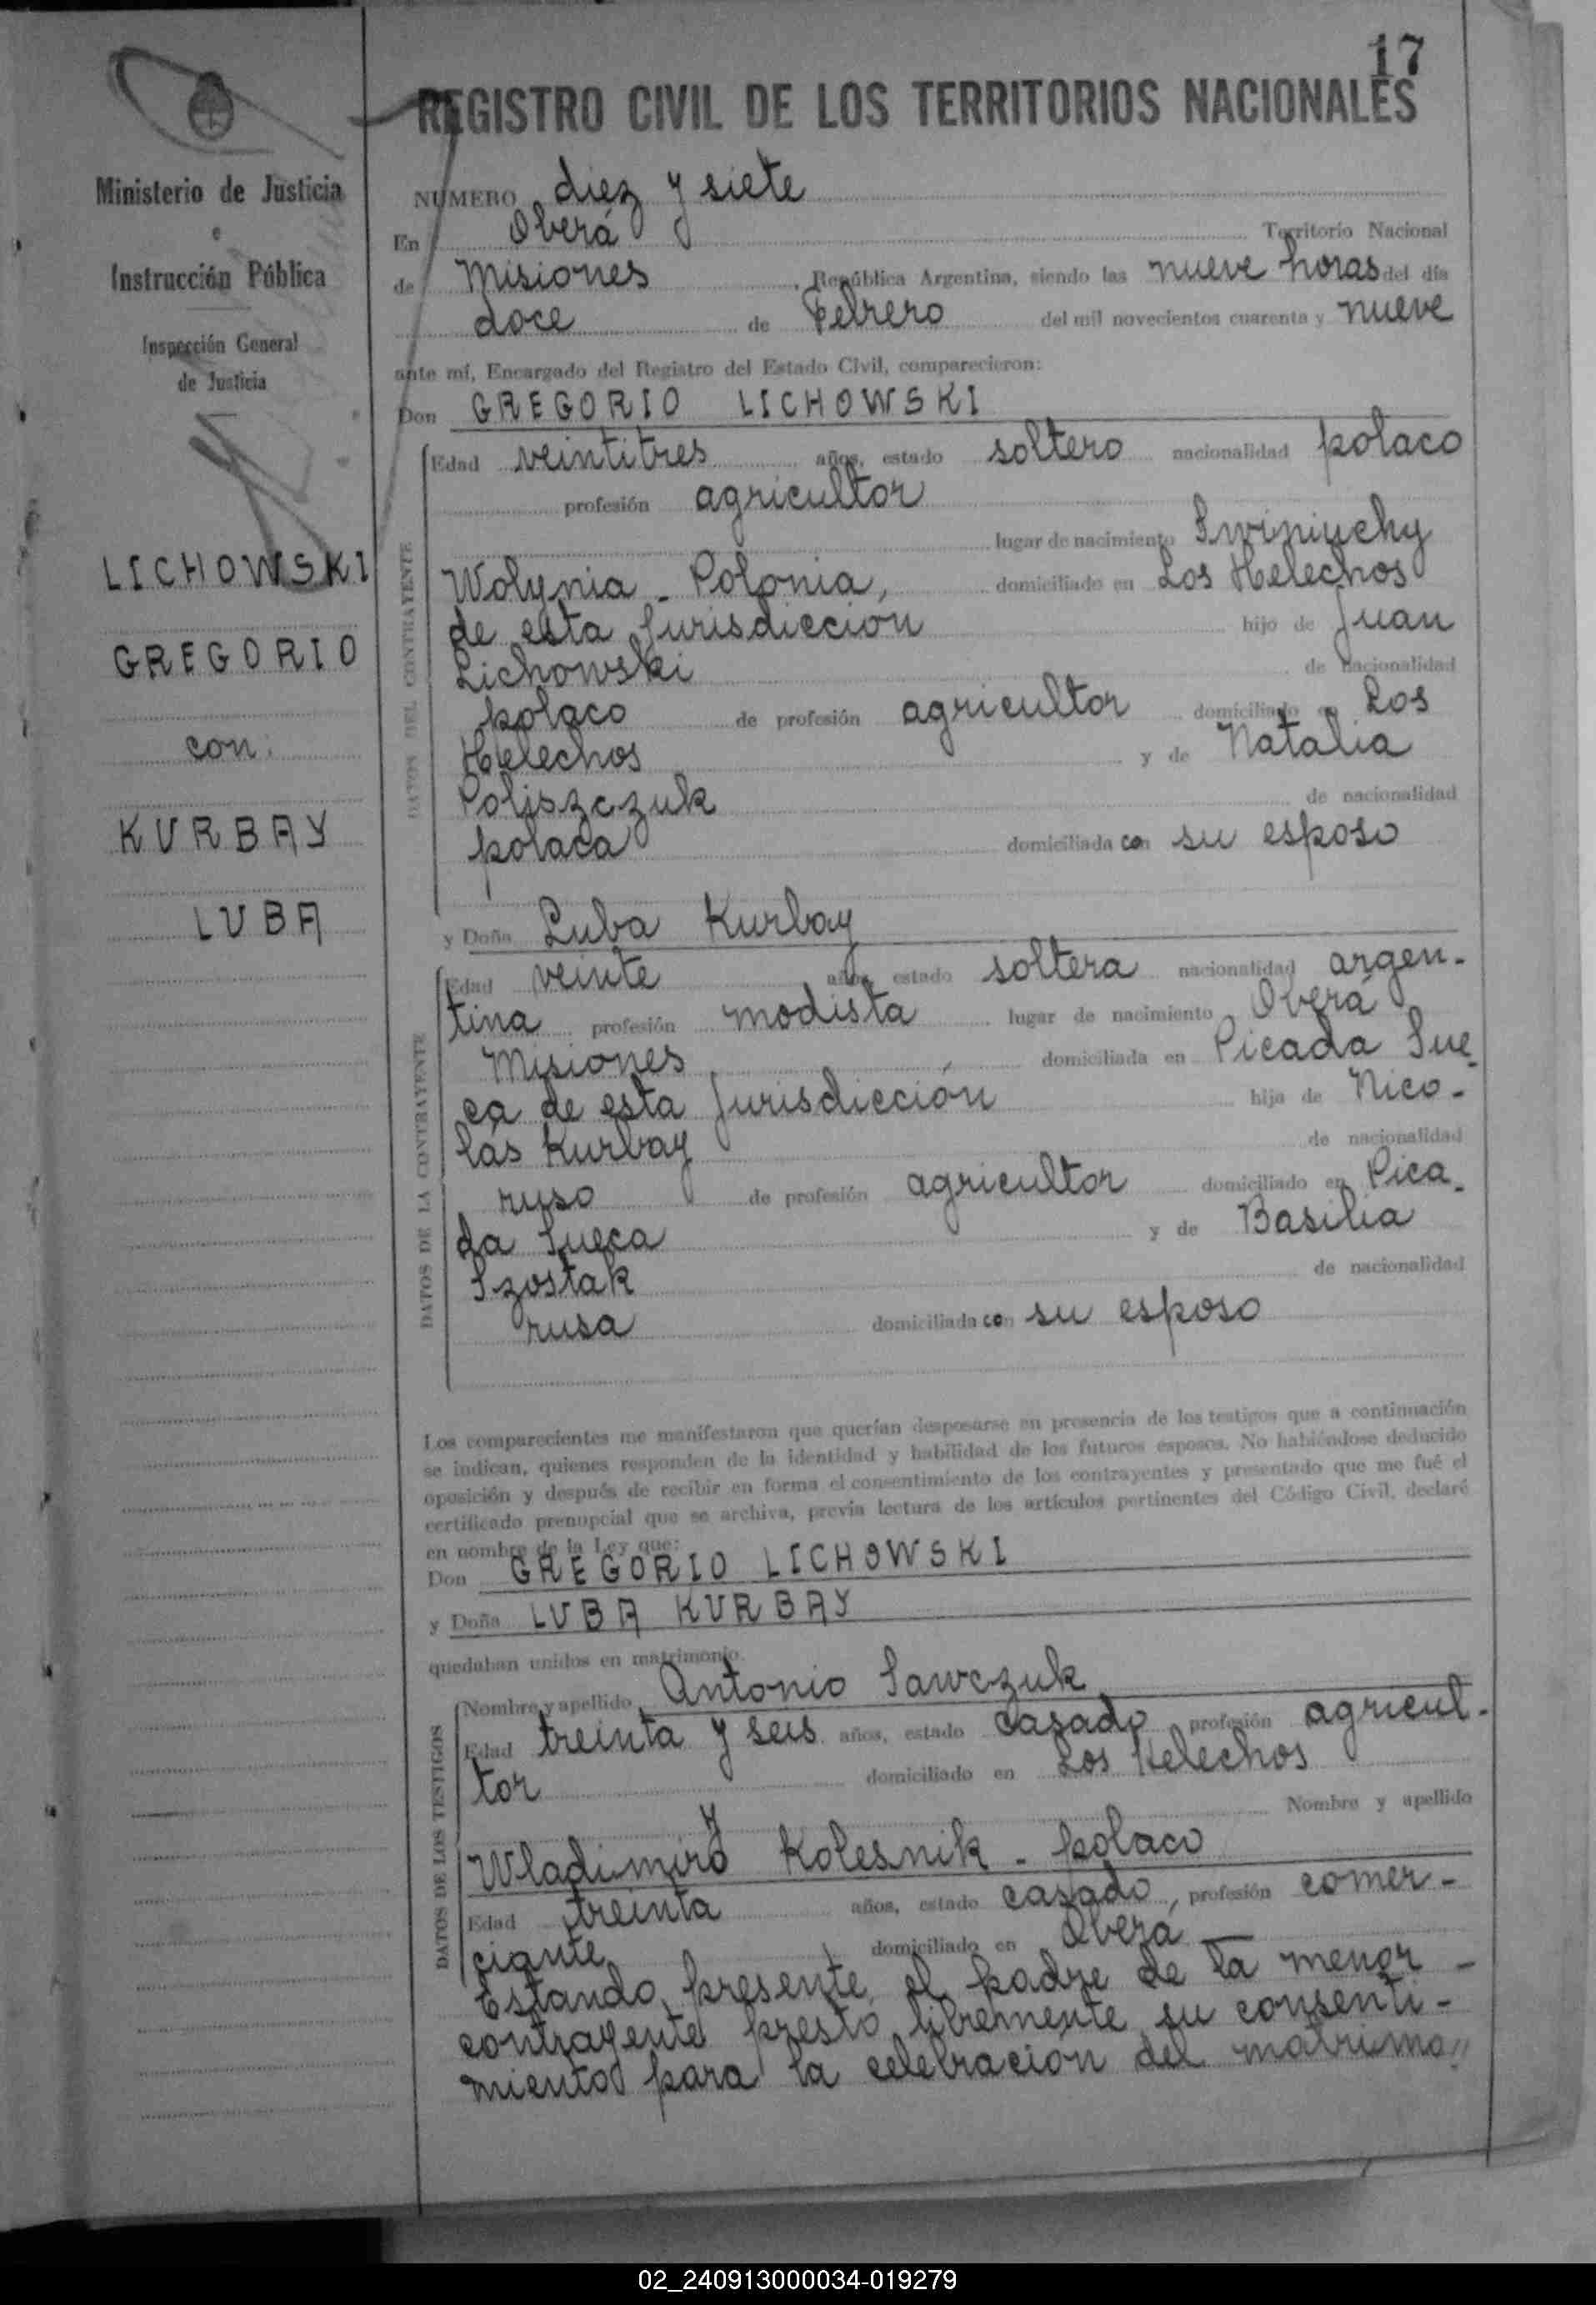 17
REGISTRO CIVIL DE LOS TERRITORIOS NACIONALES
Ministerio de Justicia
e
Instrucción Pública
Inspección General
de Justicia
LICHOWSKI
GREGORIO
con
KURBAY
LUBA
NUMERO diez y siete
En Oberá Territorio Nacional
de Misiones, República Argentina, siendo las nueve horas del día
doce de Febrero del mil novecientos cuarenta y nueve
ante mí, Encargado del Registro del Estado Civil, comparecieron:
Don GREGORIO LICHOWSKI
DATOS DEL CONTRAYENTE
Edad veintitres años, estado soltero nacionalidad polaco
profesión agricultor
lugar de nacimiento Swiniuchy
Wolynia - Polonia, domiciliado en Los Helechos
de esta Jurisdiccion hijo de Juan
Lichowski de nacionalidad
polaco de profesión agricultor domiciliado en Los
Helechos y de Natalia
Poliszczuk de nacionalidad
polaca domiciliada con su esposo
y Doña Luba Kurbay
DATOS DE LA CONTRAYENTE
Edad veinte años, estado soltera nacionalidad argen-
tina profesión modista lugar de nacimiento Oberá
Misiones domiciliada en Picada Sue-
ca de esta Jurisdicción hija de Nico-
lás Kurbay de nacionalidad
ruso de profesión agricultor domiciliado en Pica-
da Sueca y de Basilia
Szostak de nacionalidad
rusa domiciliada con su esposo
Los comparecientes me manifestaron que querían desposarse en presencia de los testigos que a continuación
se indican, quienes responden de la identidad y habilidad de los futuros esposos. No habiéndose deducido
oposición y después de recibir en forma el consentimiento de los contrayentes y presentado que me fué el
certificado prenupcial que se archiva, previa lectura de los artículos pertinentes del Código Civil, declaré
en nombre de la Ley que:
Don GREGORIO LICHOWSKI
y Doña LUBA KURBAY
quedaban unidos en matrimonio.
DATOS DE LOS TESTIGOS
Nombre y apellido Antonio Sawczuk
Edad treinta y seis años, estado casado profesión agricul-
tor domiciliado en Los Helechos
y Nombre y apellido
Wladimiro Kolesnik - polaco
Edad treinta años, estado casado, profesión comer-
ciante domiciliado en Oberá
Estando presente el padre de la menor -
contrayente prestó libremente su consenti-
miento para la celebración del matrimo"
02_240913000034-019279